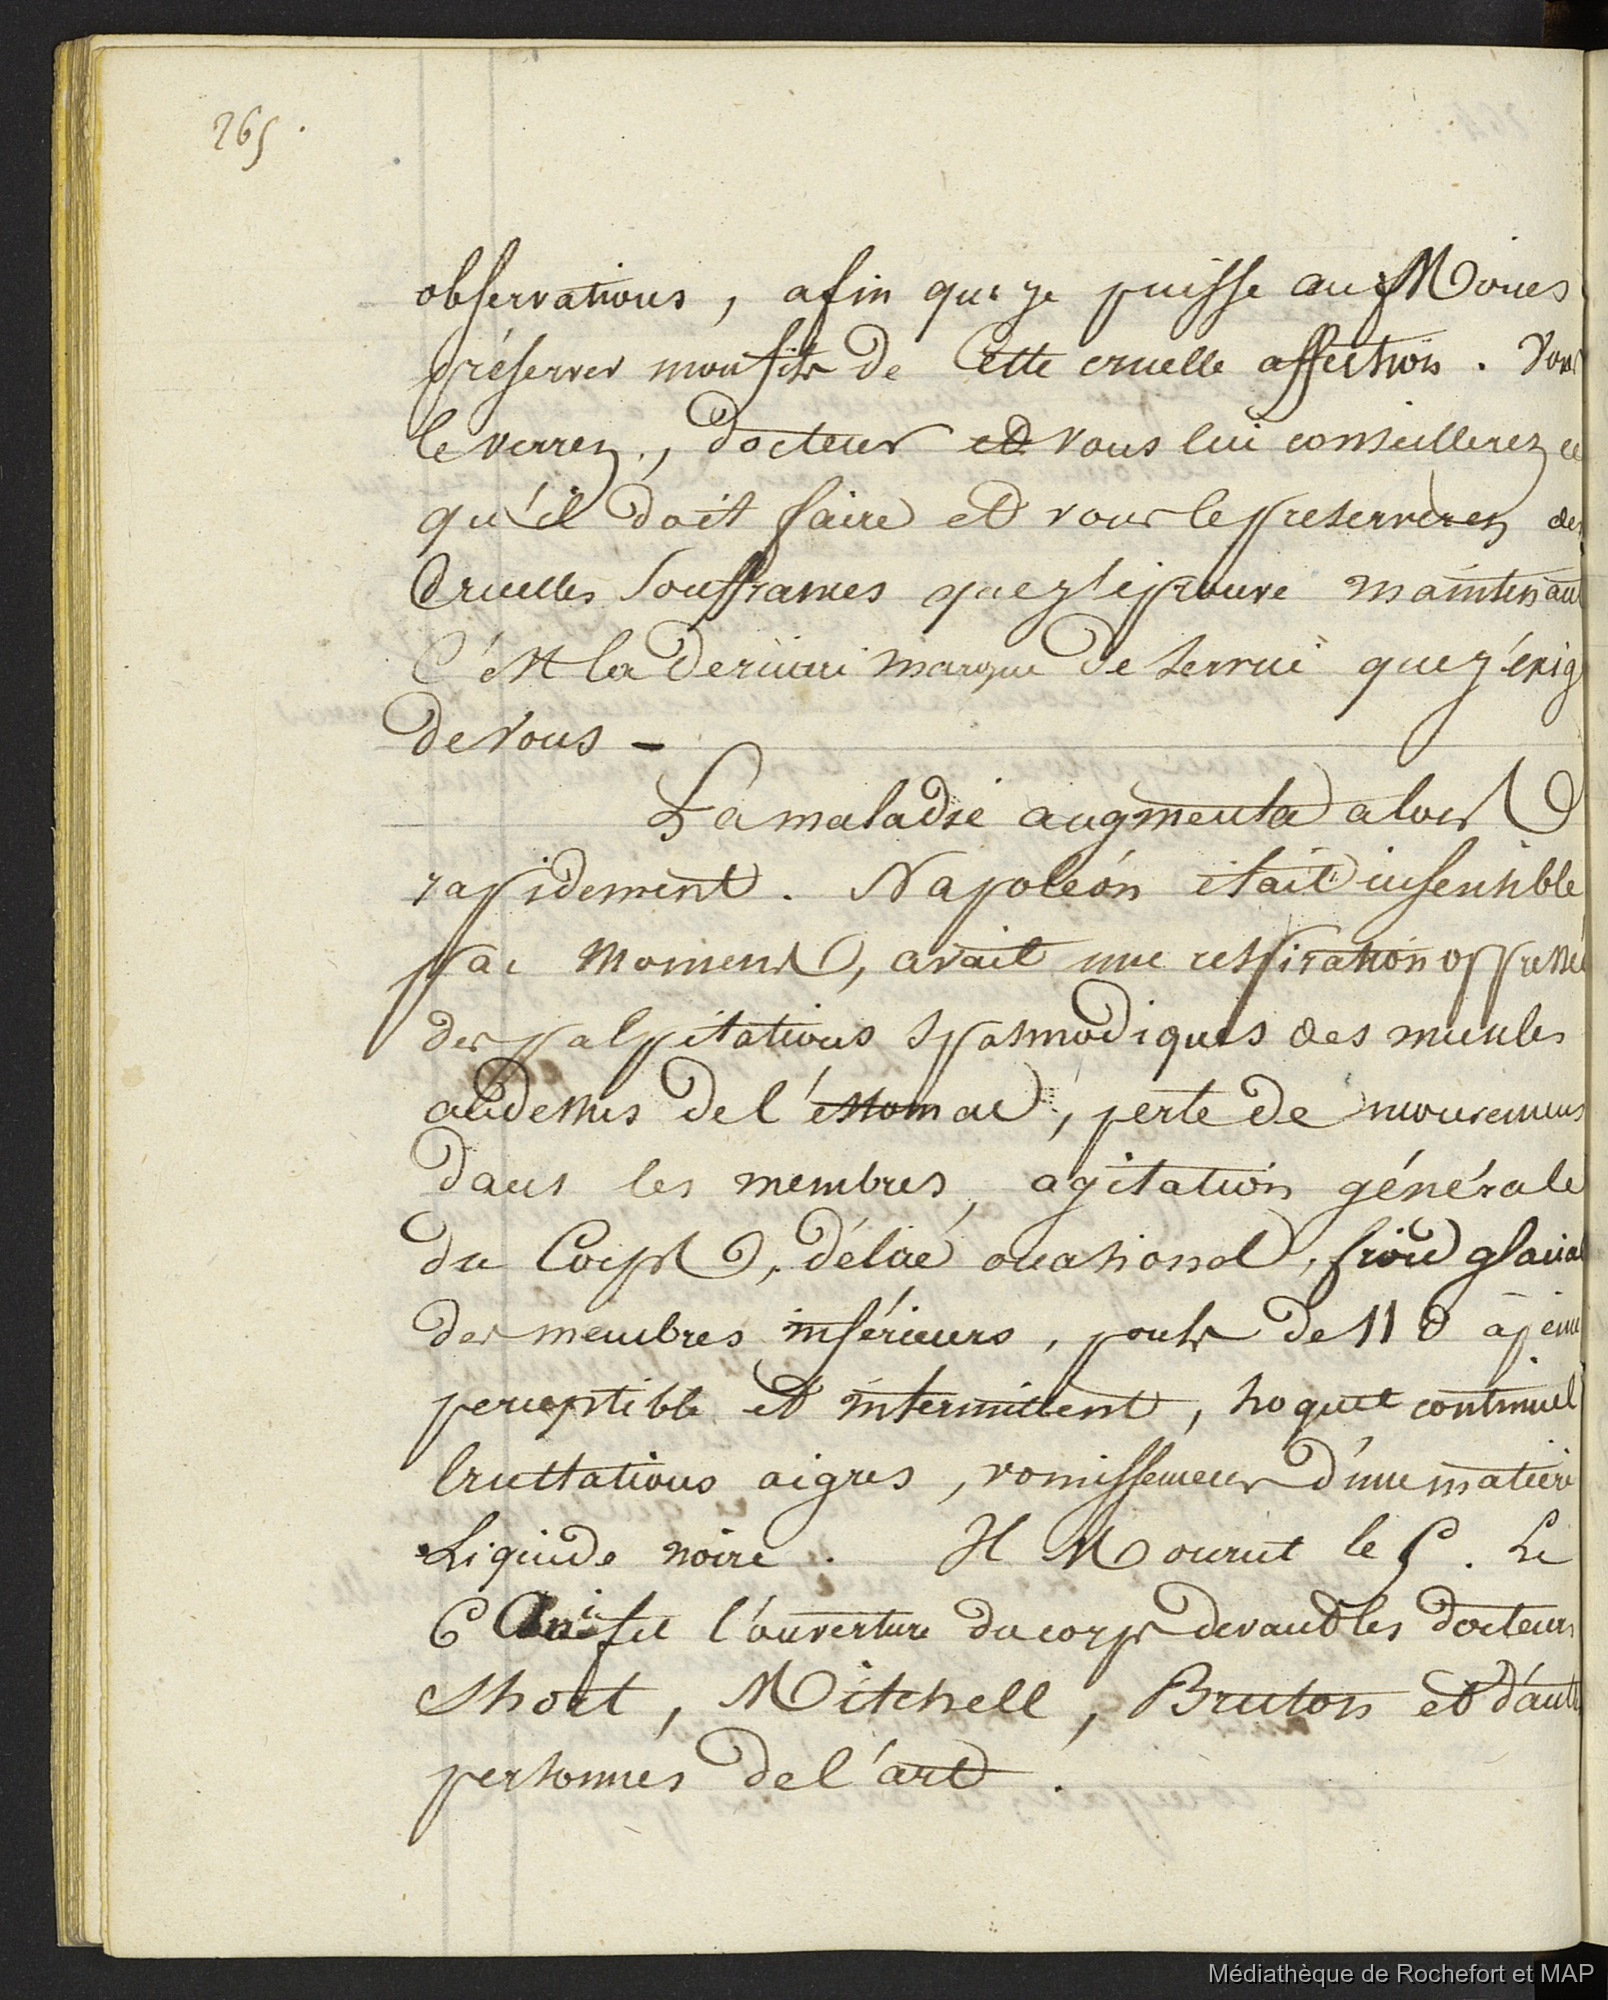 265.
observations, afin que je puisse au Moins
préserver mon fils de Cette cruelle affection. Vous
le verrez, docteur et vous lui conseillerez ce
qu'il doit faire et vous le preserverez des
Cruelles Souffrances que j'éprouve maintenant
C'est la derniere marque de service que j'exige
de Vous —
La maladie augmenta alors
rapidement. Napoléon était insensible
par moment, avait une respiration oppressée
des palpitations spasmodiques des muscles
audessus de l'estomac, perte de mouvemens
dans les membres, agitation générale
du Corps, délire occasionel, froid glacial
des membres inférieurs, pouls de 110 à peine
perceptible et intermittent, hoquet continuel
éructations aigres, vomissemens d'une matière
Liquide noire. Il Mourut le 5. Le
6 fit l'ouverture du corps devant les docteurs
Short, Mitchell, Bruton et d'autres
personnes de l'art.
Médiathèque de Rochefort et MAP